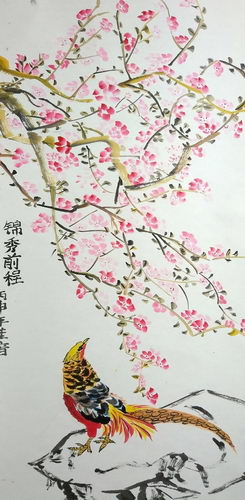 锦秀前程
丙申年